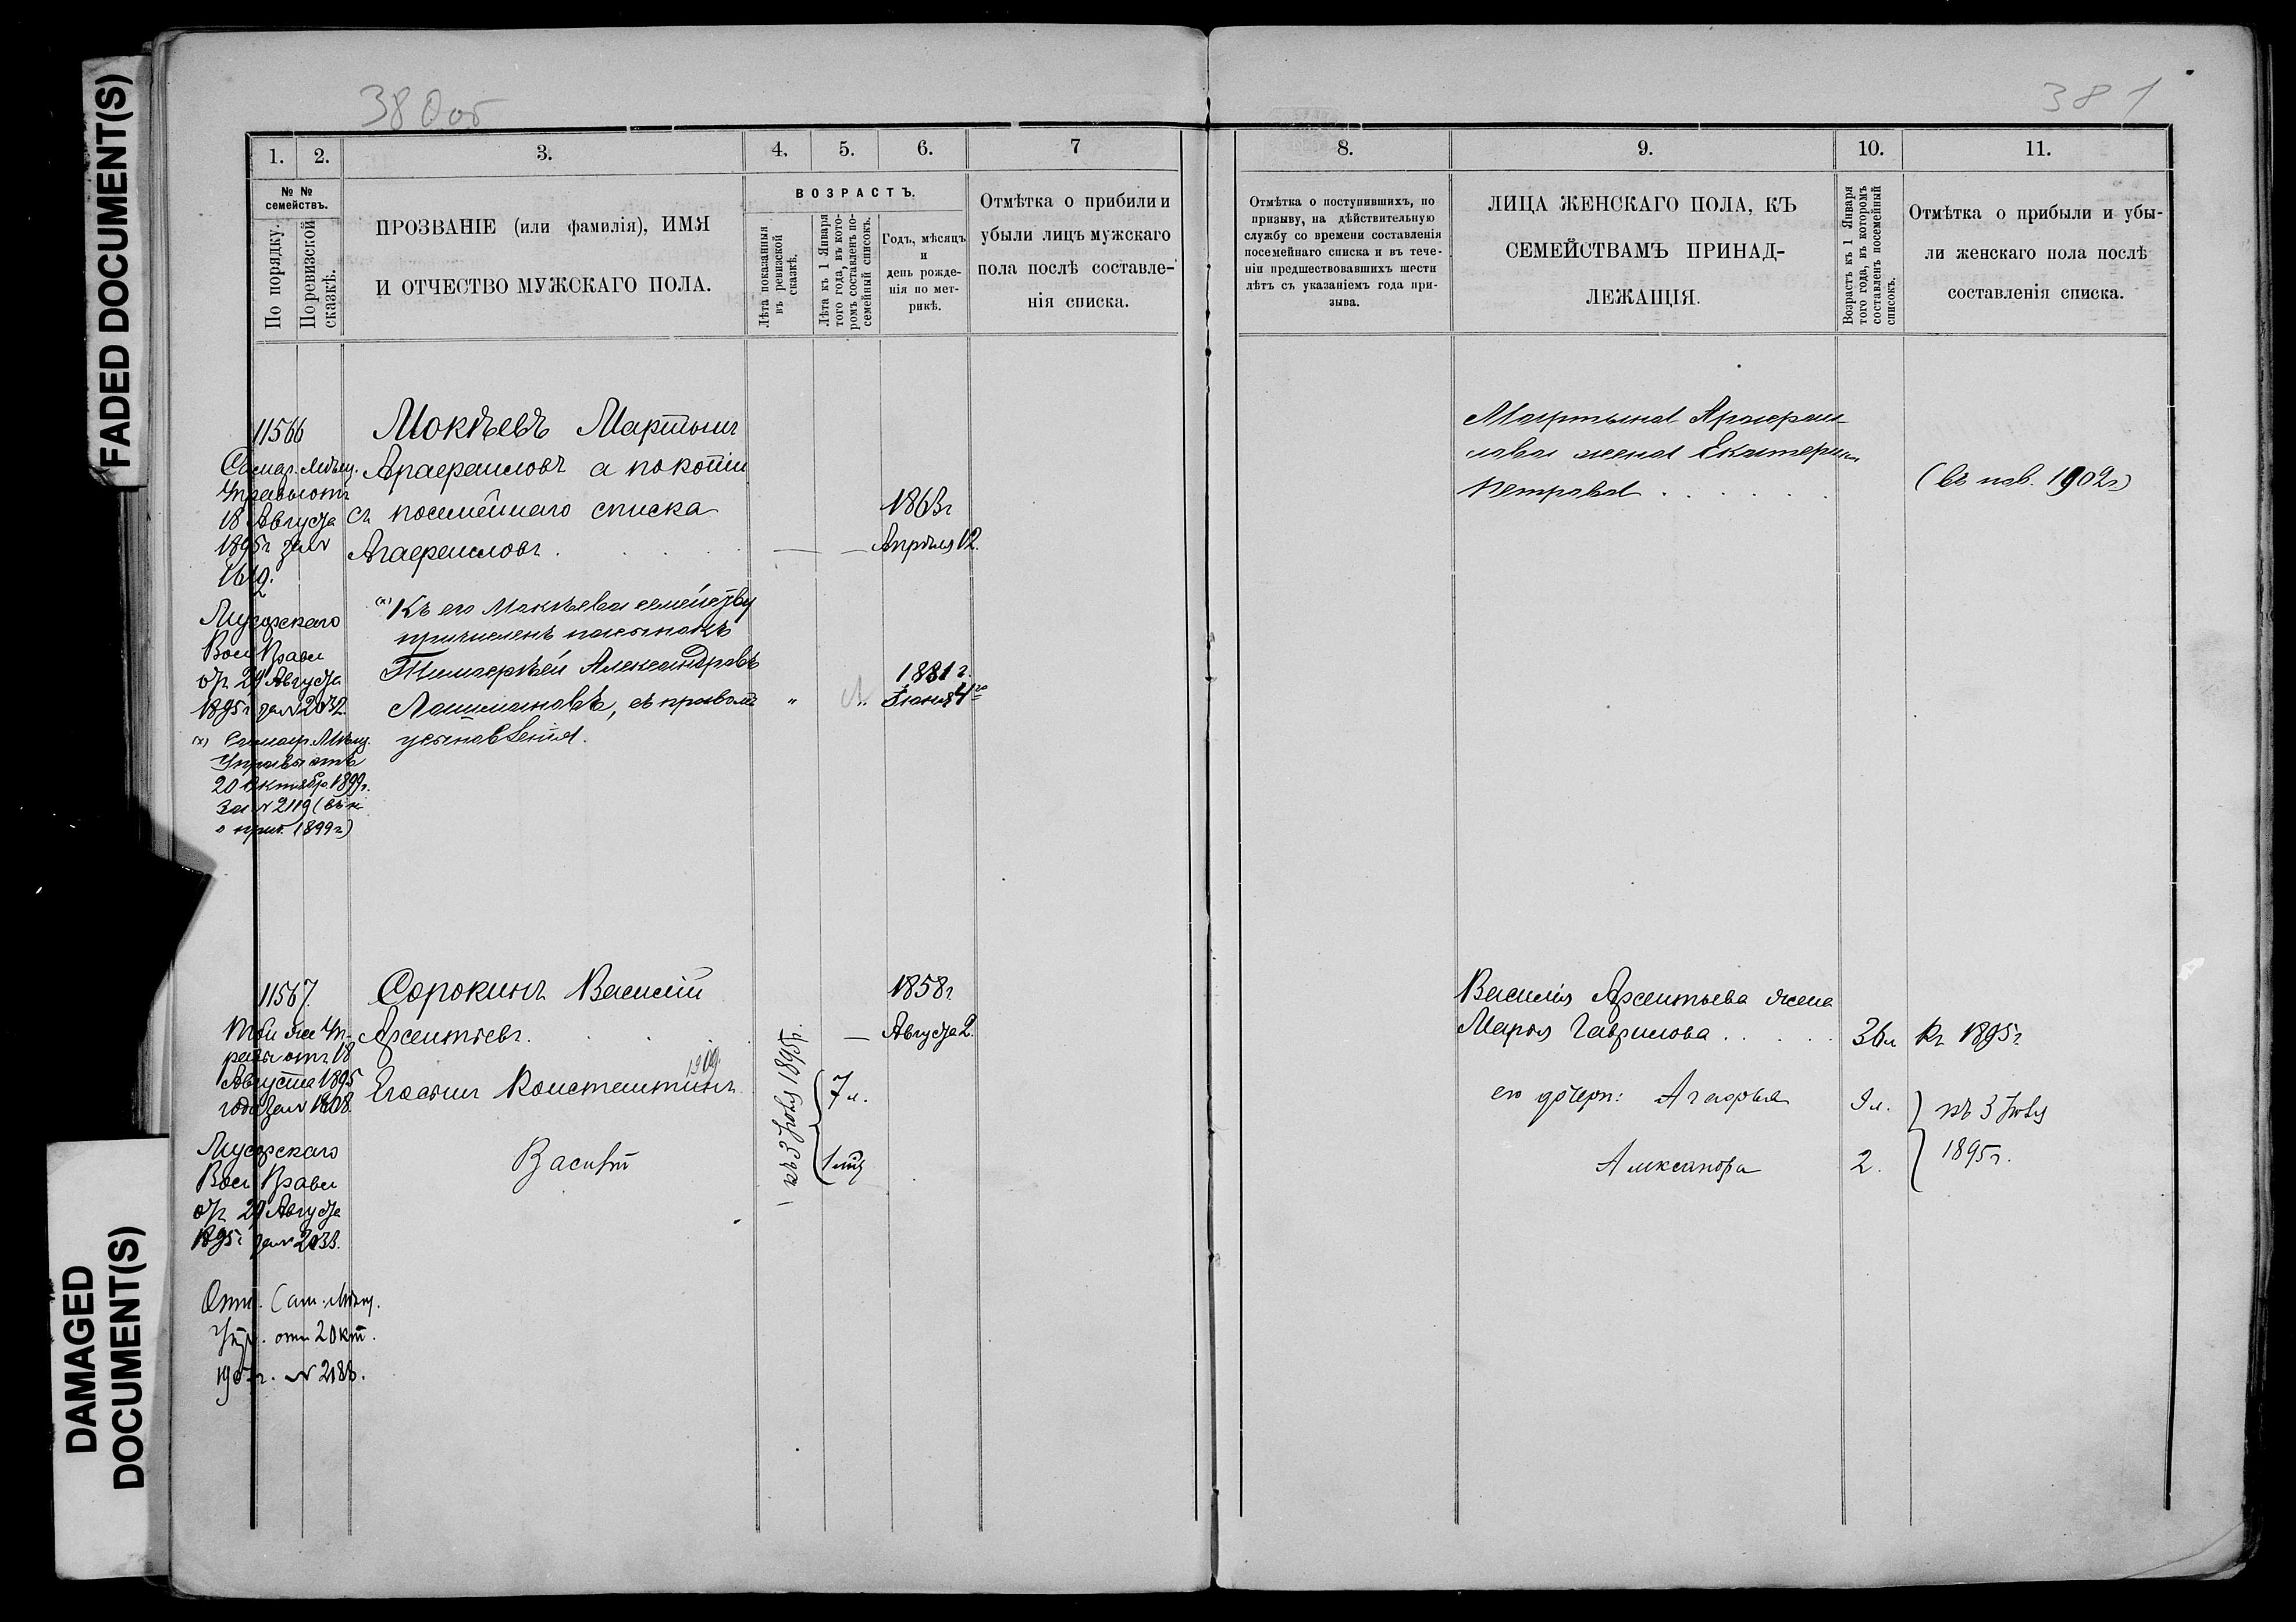 FADED DOCUMENT(S)
DAMAGED
DOCUMENT(S)
380об
1.
2.
3.
4.
5.
6.
7
№ №
семействъ.
По порядку.
По ревизской
сказкѣ.
ПРОЗВАНІЕ (или фамилія), ИМЯ
И ОТЧЕСТВО МУЖСКАГО ПОЛА.
ВОЗРАСТЪ.
Лѣта показанныя
въ ревизской
сказкѣ.
Лѣта къ 1 Января
того года, въ кото-
ромъ составленъ по-
семейный списокъ.
Годъ, мѣсяцъ
и
день рожде-
нія по мет-
рикѣ.
Отмѣтка о прибили и
убыли лицъ мужскаго
пола послѣ составле-
нія списка.
11566
Самар. Мѣщ.
Управы отъ
18 Августа
1895г за №
1612.
Мокѣевъ Мартынъ
Агаѳрангеловъ а по копіи
съ посемейнаго списка
1863г
Апрѣля 12.
Вол Правл
от 29 Августа
1895г за № 2032
(х) Къ его Мокѣева семейству
причисленъ пасынокъ
Тимоѳѣй Александровъ
съ правомъ
1881 г.
Іюня 4го
(х) Самар. Мѣщ.
Управы отъ
20 Октября 1899г.
за № 2119 (въ к
о приб. 1899г)
11567.
Той же Уп-
равы отъ 18
Августа 1895
года за № 1608
Сорокинъ Василій
Арсентьевъ.
1858г
Августа 2.
1909.
Его сынъ Константинъ
къ 3 Іюля 1895г.
7 л.
Василій
1 мц
Вол Правл
от 29 Августа
1895г за № 2033.
Отн. Сам. Мѣщ.
Упр. отъ 20 кт.
№ 2188.
381
8.
9.
10.
11.
Отмѣтка о поступившихъ, по
призыву, на дѣйствительную
службу со времени составленія
посемейнаго списка и въ тече-
ніи предшествовавшихъ шести
лѣтъ съ указаніемъ года при-
зыва.
ЛИЦА ЖЕНСКАГО ПОЛА, КЪ
СЕМЕЙСТВАМЪ ПРИНАД-
ЛЕЖАЩІЯ.
Возрастъ къ 1 Января
того года, въ которомъ
составленъ посемейный
списокъ.
Отмѣтка о прибыли и убы-
ли женскаго пола послѣ
составленія списка.
Мартына
жена Екатерина
Петрова
1902г)
Василія Арсентьева жена
Марья Гаврилова
36л
къ 1895г
его дочери: Агафья
9 л.
къ 3 Іюля
Александра
2.
1895г.